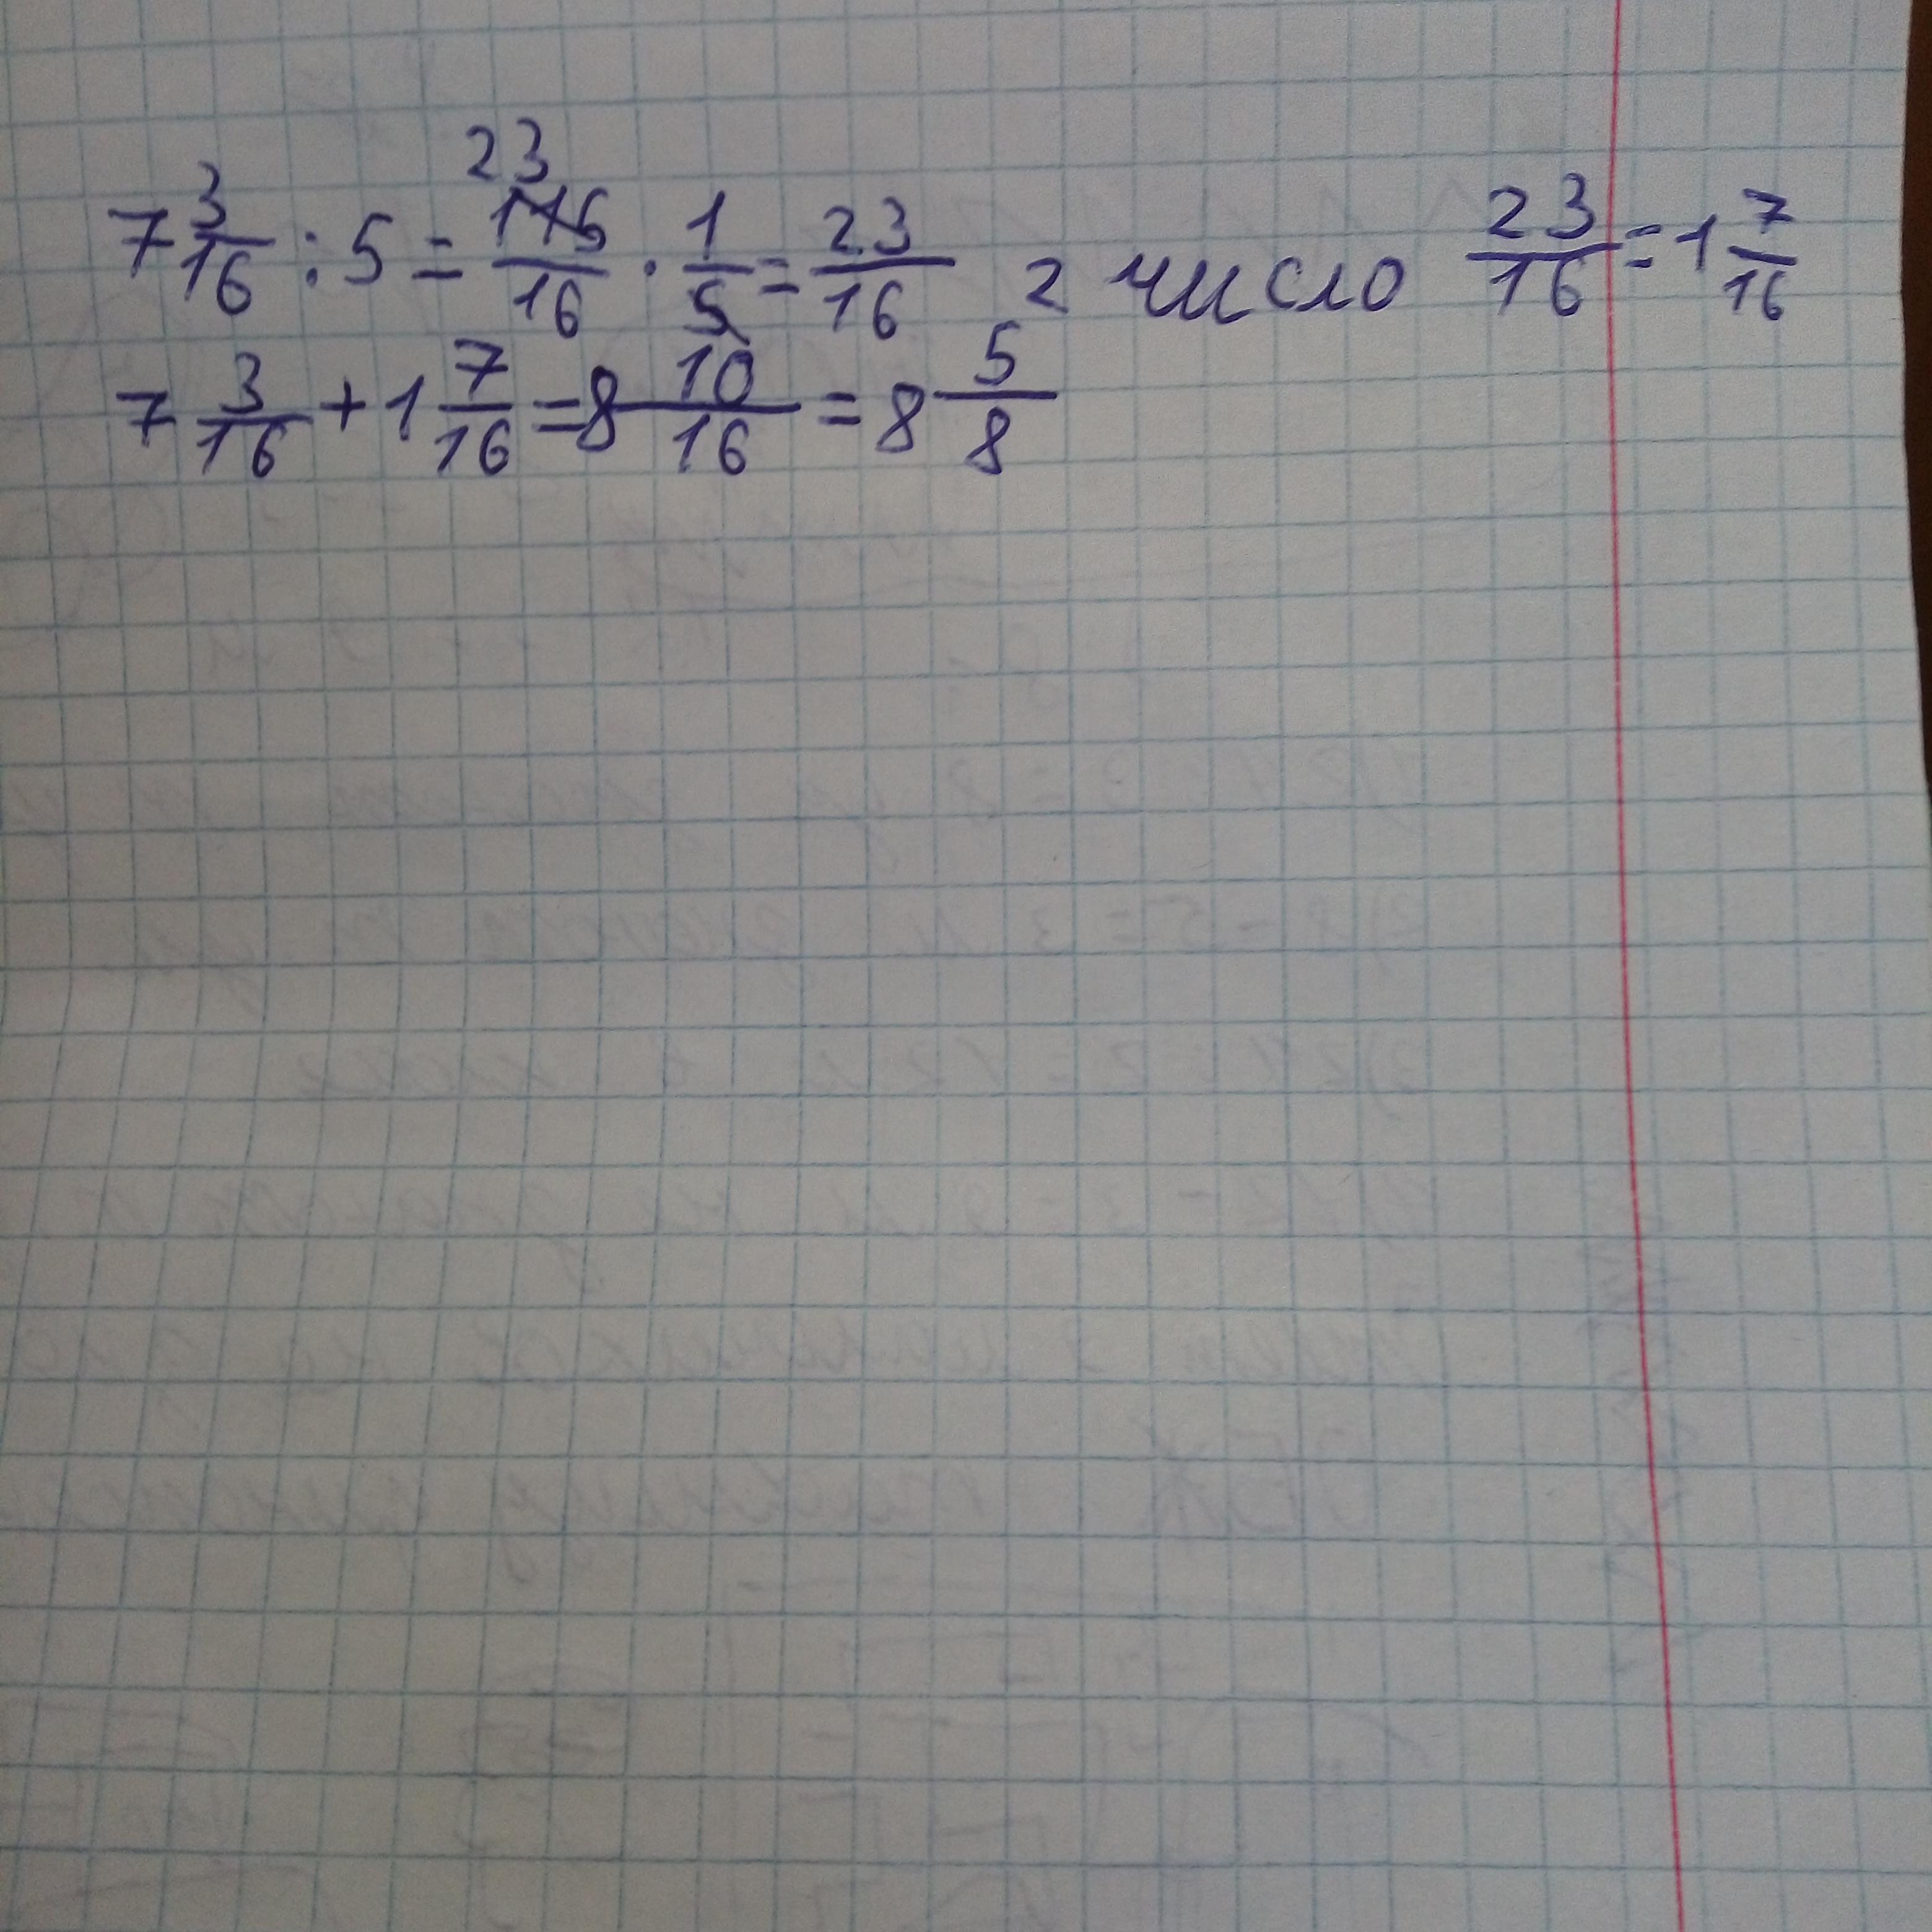 7 3/16 : 5 = 23 116/16 · 1/5 = 23/16 2 число 23/16 = 1 7/16
7 3/16 + 1 7/16 = 8 10/16 = 8 5/8